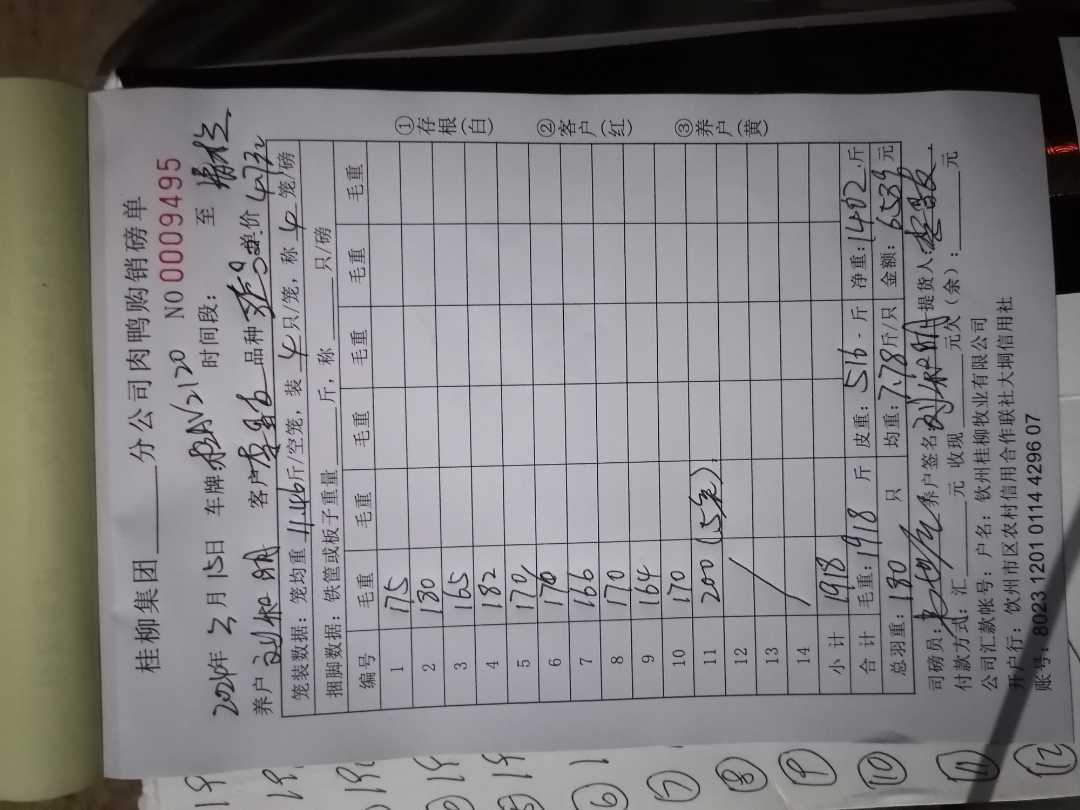 桂柳集团______分公司肉鸭购销磅单
NO 0009495
2024年3月15日 车牌 AV2120 时间段: 至
养户 刘和明 客户 品种 单价
笼装数据:笼均重 11.46 斤/空笼,装 4 只/笼,称 4 笼/磅
捆脚数据:铁筐或板子重量______斤,称______只/磅
编号 毛重 毛重 毛重 毛重 毛重 毛重
1 175
2 130
3 165
4 182
5 170
6 170
7 166
8 170
9 164
10 170
11 200 (5笼)
12
13
14
小计 1918
合计 毛重:1918 斤 皮重:516 斤 净重:1402 斤
总羽重:180 只 均重:7.78 斤/只 金额:6539 元
司磅员: 养户签名 刘和明 提货人:
付款方式:汇______元 收现______元欠(余):______元
公司汇款帐号:户名:钦州桂柳牧业有限公司
开户行:钦州市区农村信用合作联社大垌信用社
账号:8023 1201 0114 4296 07
①存根(白)
②客户(红)
③养户(黄)
19
19
19
19
⑤ 19
⑥ 1
⑦
⑧
⑨
⑩
⑪
⑫